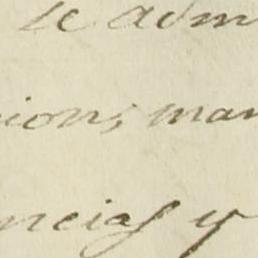 se adm
ions, man
ncias y